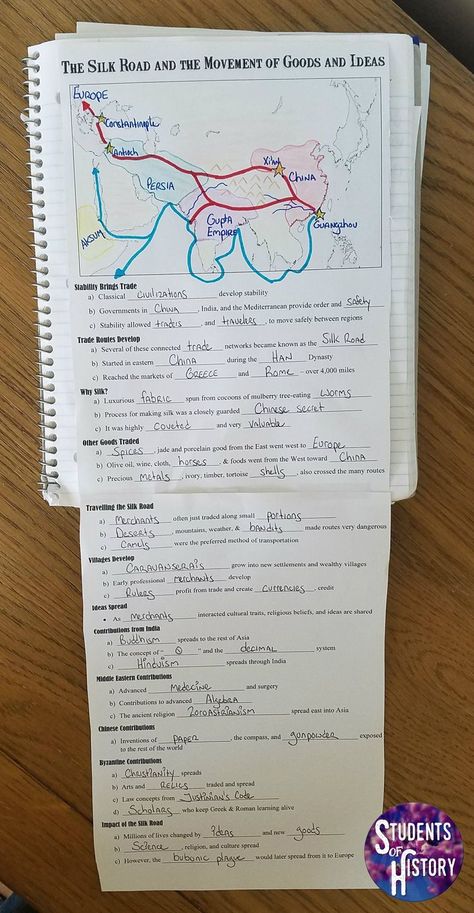 THE SILK ROAD AND THE MOVEMENT OF GOODS AND IDEAS
EUROPE
Constantinople
Antioch
Xi'an
PERSIA
CHINA
AKSUM
Gupta
Empire
GUANGZHOU
Stability Brings Trade
a) Classical civilizations develop stability
b) Governments in CHINA, India, and the Mediterranean provide order and safety
c) Stability allowed traders, and travelers, to move safely between regions
Trade Routes Develop
a) Several of these connected trade networks became known as the Silk Road
b) Started in eastern China during the HAN Dynasty
c) Reached the markets of GREECE and Rome – over 4,000 miles
Why Silk?
a) Luxurious fabric spun from cocoons of mulberry tree-eating worms
b) Process for making silk was a closely guarded Chinese secret
c) It was highly coveted and very valuable
Other Goods Traded
a) Spices, jade and porcelain good from the East went west to Europe
b) Olive oil, wine, cloth, horses & foods went from the West toward China
c) Precious metals, ivory, timber, tortoise shells, also crossed the many routes
Travelling the Silk Road
a) Merchants often just traded along small portions
b) Deserts, mountains, weather, & bandits made routes very dangerous
c) Camels were the preferred method of transportation
Villages Develop
a) CARAVANSERAIS grow into new settlements and wealthy villages
b) Early professional merchants develop
c) Rulers profit from trade and create currencies, credit
Ideas Spread
• As merchants interacted cultural traits, religious beliefs, and ideas are shared
Contributions from India
a) Buddhism spreads to the rest of Asia
b) The concept of "0" and the decimal system
c) Hinduism spreads through India
Middle Eastern Contributions
a) Advanced medecine and surgery
b) Contributions to advanced Algebra
c) The ancient religion ZOROASTRIANISM spread east into Asia
Chinese Contributions
a) Inventions of PAPER, the compass, and gunpowder exposed
to the rest of the world
Byzantine Contributions
a) Christianity spreads
b) Arts and RELICS traded and spread
c) Law concepts from Justinian's Code
d) Scholars who keep Greek & Roman learning alive
Impact of the Silk Road
a) Millions of lives changed by ideas and new goods
b) Science, religion, and culture spread
c) However, the bubonic plague would later spread from it to Europe
STUDENTS
OF
HISTORY